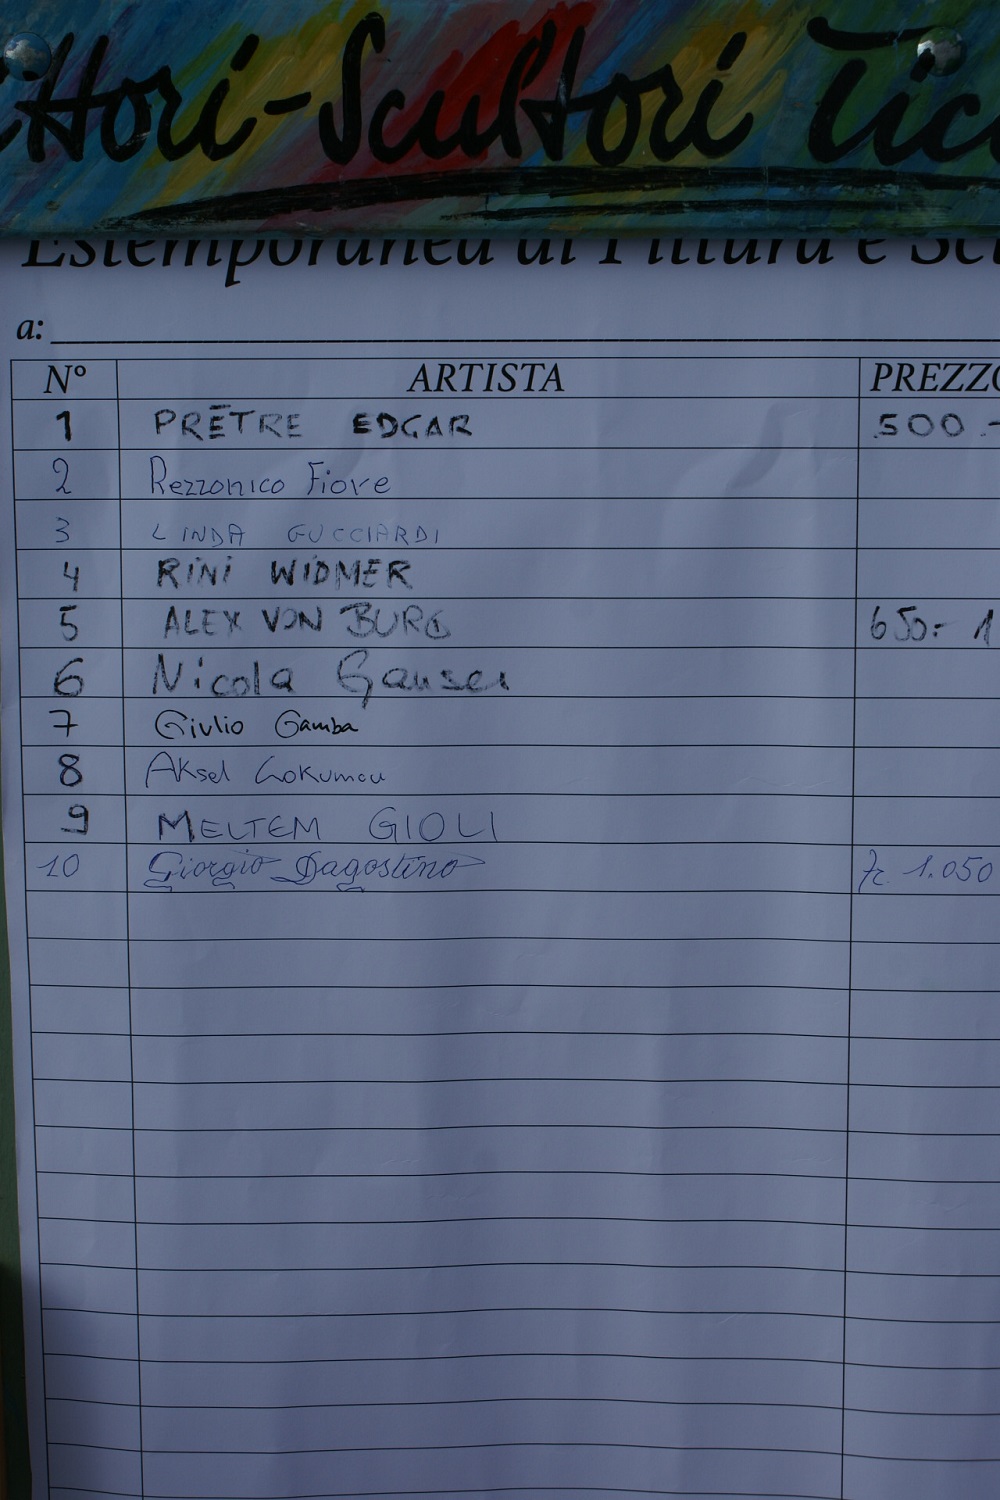 ttori-Scultori Tic
Estemporanea di Pittura e Scu
a:
N° ARTISTA PREZZO
1 PRÊTRE EDGAR 500.-
2 Rezzonico Fiore
3 LINDA GUCCIARDI
4 RINI WIDMER
5 ALEX VON BURG 650.- 1
6 Nicola Gansei
7 Giulio Gamba
8 Aksel
9 MELTEM GIOLI
10 Giorgio Dagostino Fr. 1.050